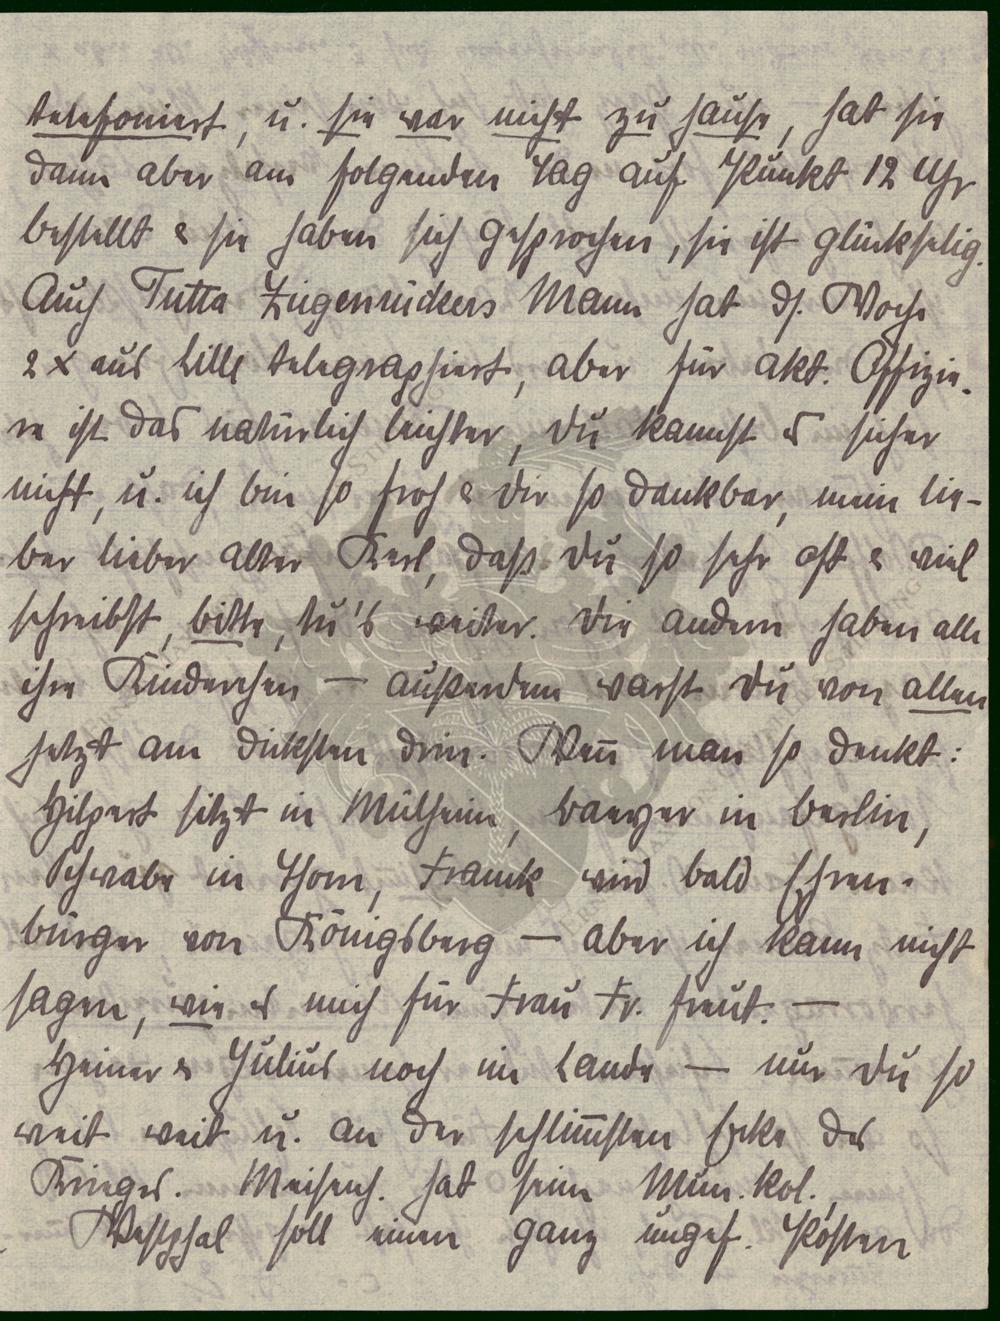 telefoniert, u. sie war nicht zu hause, hat sie
dann aber am folgenden Tag auf Punkt 12 Uhr
bestellt & sie haben sich gesprochen, sie ist glückselig.
Auch Tutta Zügenrückers Mann hat ds. Woche
2 x aus Lille telegraphiert, aber für akt. Offizie-
re ist das natürlich leichter, du kannst es sicher
nicht, u. ich bin so froh & dir so dankbar, mein lie-
ber lieber alter Kerl, daß du so sehr oft & viel
schreibst, bitte, tu's weiter. Die andern haben alle
ihre Kinderchen — außerdem warst du von allen
jetzt am dicksten drin. Wenn man so denkt:
Hilpert sitzt in Mülheim, baeyer in Berlin,
Schwabe in Thorn, Franck wird bald Ehren-
bürger von Königsberg — aber ich kann nicht
sagen, wie es mich für Frau Fr. freut. —
Heiner & Julius noch im Lande — nur du so
weit weit u. an der schlim̅sten Ecke des
Krieges. Meisenh. hat seine Mun. Kol.
Westphal soll einen ganz ungef. Posten